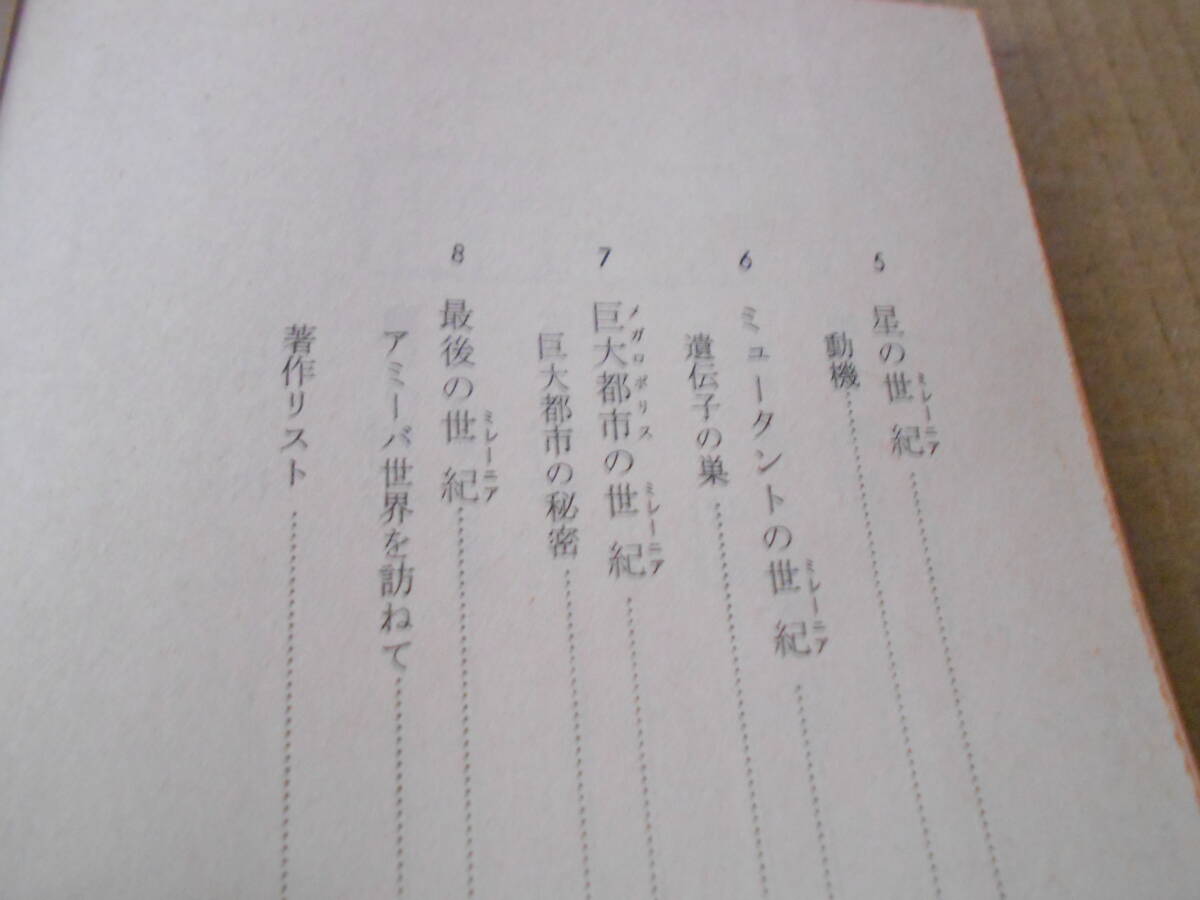 5 星の世紀
ミレーニア
動機
6 ミュータントの世紀
ミレーニア
遺伝子の巣
7 巨大都市の世紀
メガロポリス ミレーニア
巨大都市の秘密
8 最後の世紀
ミレーニア
アミーバ世界を訪ねて
著作リスト